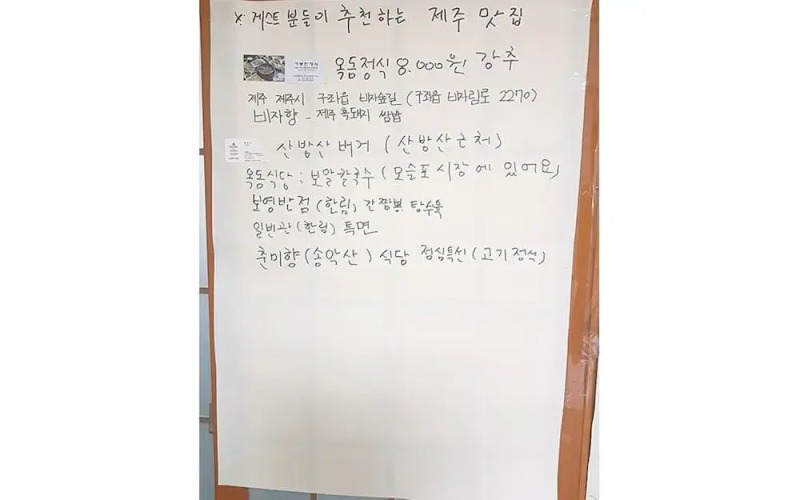 ※ 게스트 분들이 추천하는 제주 맛집
옥돔정식 8.000원 강추
제주 제주시 구좌읍 비자숲길 (구좌읍 비자림로 2270)
비자향 - 제주 흑돼지 쌈밥
산방산 버거 (산방산 근처)
옥돔식당 : 보말칼국수 (모슬포 시장에 있어요)
보영반점 (한림) 간짬뽕 탕수육
일빈관 (한림) 특면
춘미향 (송악산) 식당 점심특선 (고기정식)